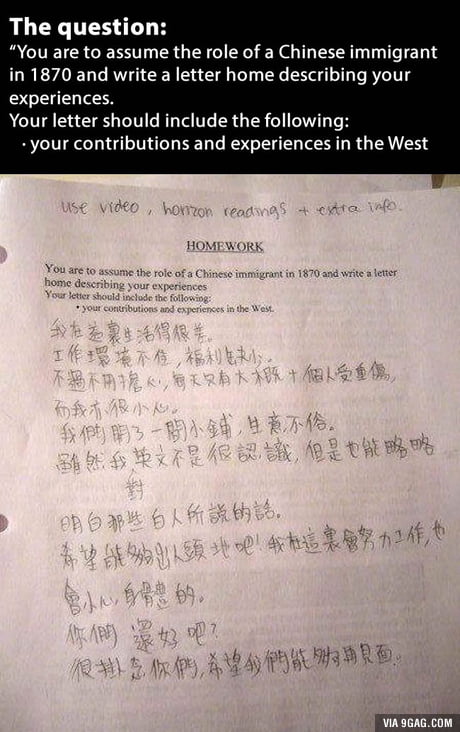 The question:
“You are to assume the role of a Chinese immigrant
in 1870 and write a letter home describing your
experiences.
Your letter should include the following:
· your contributions and experiences in the West
use video, horizon readings + extra info.
HOMEWORK
You are to assume the role of a Chinese immigrant in 1870 and write a letter
home describing your experiences
Your letter should include the following:
• your contributions and experiences in the West.
我在這裏生活得很差。
工作環境不佳，福利缺小。
不過不用擔心，每天只有大概十個人受重傷，
而我亦很小心。
我們開了一間小鋪，生意不俗。
雖然我英文不是很認識，但是也能略略
對
明白那些白人所說的話。
希望能夠出人頭地吧！我在這裏會努力工作，也
會小心身體的。
你們還好吧？
很掛念你們，希望我們能夠再見面。
VIA 9GAG.COM